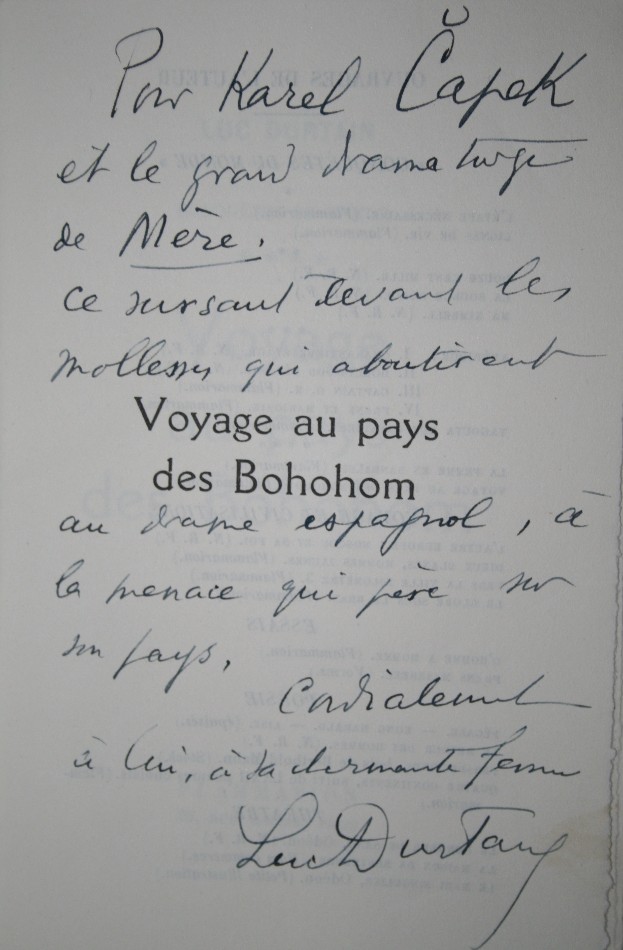 Pour Karel Čapek
et le grand dramaturge
de Mère.
ce sursaut devant les
mollesses qui aboutirent
Voyage au pays
des Bohohom
au drame espagnol, à
la menace qui pèse sur
son pays.
Cordialement
à lui, à sa charmante femme
Luc Durtain